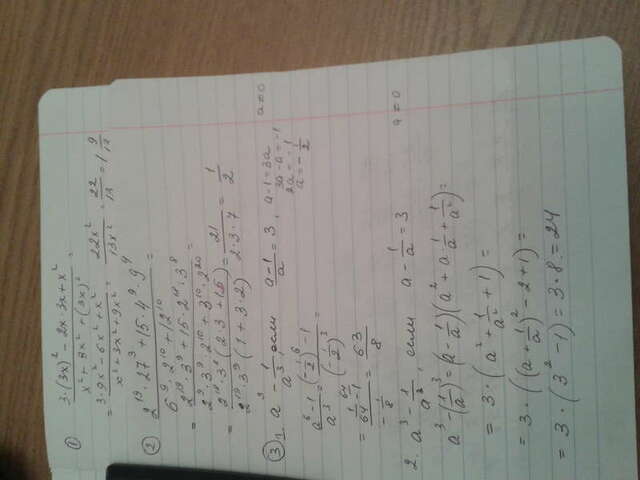 ① 3·(3x)² - 2x·3x + x² / x² + 3x² + (3x)² =
= 3·9x² - 6x² + x² / x² + 3x² + 9x² = 22x² / 13x² = 22 / 13 = 1 9/13
② 2¹⁹·27³ + 15·4⁹·9⁴ / 6⁹·2¹⁰ + 12¹⁰ =
= 2¹⁹·3⁹ + 15·2¹⁸·3⁸ / 2⁹·3⁹·2¹⁰ + 3¹⁰·2²⁰ =
= 2¹⁸·3⁸ (2·3 + 15) / 2¹⁹·3⁹ (1 + 3·2) = 21 / 2·3·7 = 1 / 2
③ 1. a³ - 1/a³, если a-1 / a = 3, a-1 = 3a a≠0
3a - a = -1
2a = -1
a = - 1/2
a⁶-1 / a³ = (-1/2)⁶ - 1 / (-1/2)³ =
= 1/64 - 1 / - 1/8 = 63 / 8
2. a³ - 1/a³, если a - 1/a = 3 a≠0
a³ - (1/a)³ = (a - 1/a)(a² + a·1/a + 1/a²) =
= 3·(a² + 1/a² + 1) =
= 3·((a + 1/a)² - 2 + 1) =
= 3·(3² - 1) = 3·8 = 24